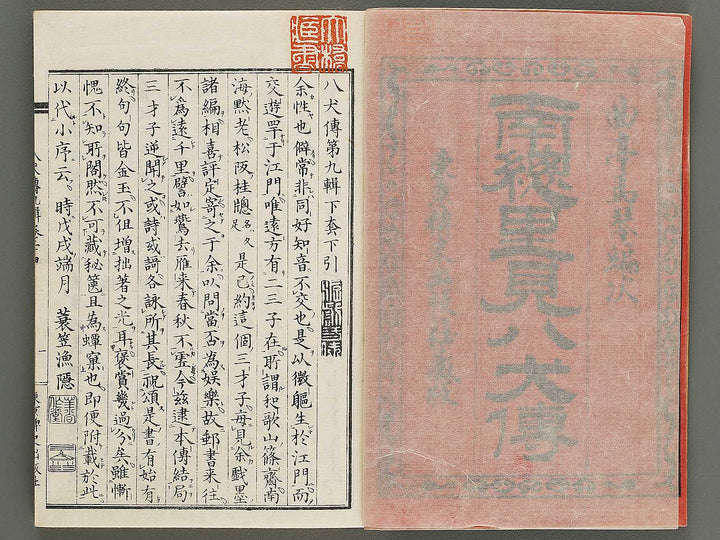 南總里見八犬傳
八犬傳第九輯下套下引
余性也僻常非同好知音不交也是以徴軀生於江門而
交遊罕于江門唯遠方有二三子在所謂和歌山篠齋南
海黙老松阪桂牕名久足是已約這個三才子每見余戲墨
諸編相喜評定寄之于余以問當否為娯樂故郵書来往
不為遠千里譬如鴬去雁来春秋不虚今茲逮本傳結局
三才子逆聞之或詩或謌各詠所其長視頌是書有始有
終句句皆金玉不但増拙著之光耳褒賞幾過分矣雖慚
愧不知所閣然不可藏秘篋且為蟫窠也即便附載於此
以代小序云。時戊戌端月 蓑笠漁隱